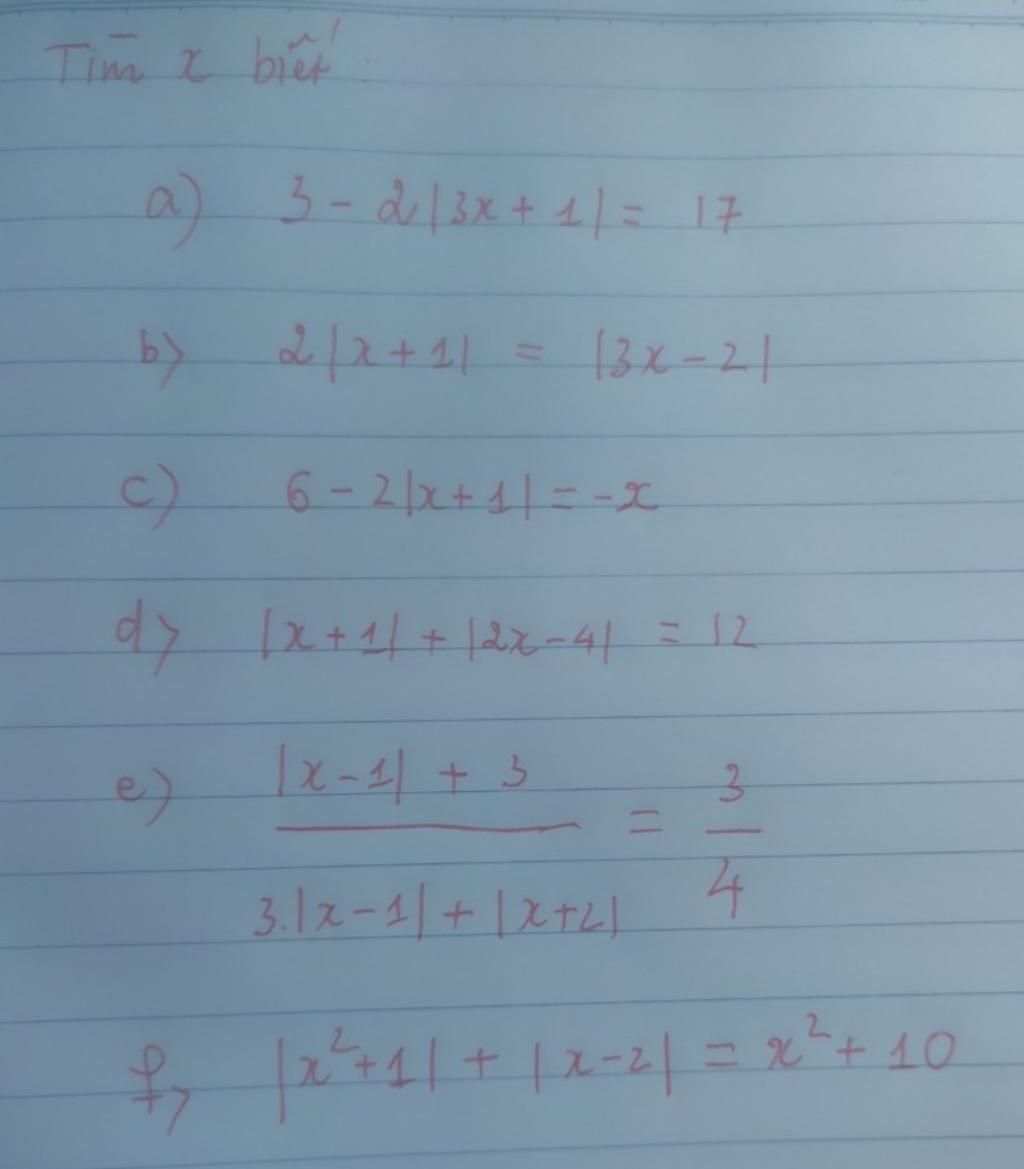 Tìm x biết :
a) 3 - 2|3x + 1| = 17
b) 2|x + 1| = |3x - 2|
c) 6 - 2|x + 1| = -x
d) |x + 1| + |2x - 4| = 12
e) \frac{|x - 1| + 3}{3.|x - 1| + |x + 2|} = \frac{3}{4}
f) |x² + 1| + |x - 2| = x² + 10